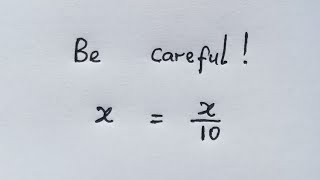 Be careful!
x = x/10